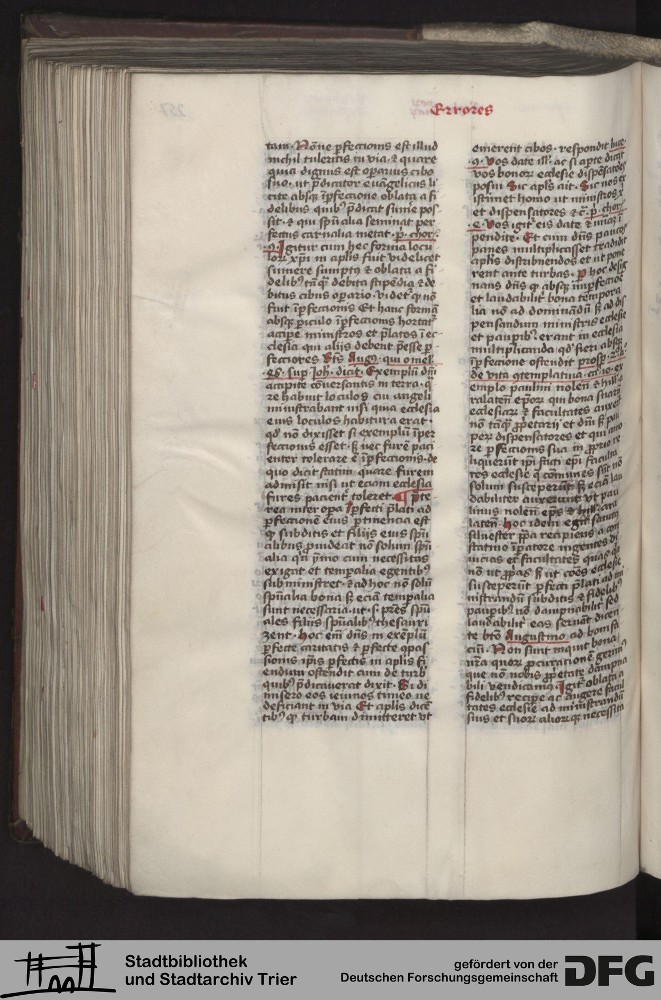 Errores
tam. Nōne ꝑfeccionis est illud
nichil tuleritis in via. ⁊ quare
quia dignus est oꝑarius cibo
suo. ut p̄dicator ewāgelicus li
cite absqꝫ īꝑfeccione oblata a fi
delibus quibꝰ p̄dicat sume pos
sit. ⁊ qui spūalia seminat ꝑ
fectus carnalia metat. p. chor.
9. Igitur cum hec forma locu
lorꝫ xp̄i in aplis fuit videlicet
sumere sumptꝰ ⁊ oblata a fi
delibꝰ tāqꝫ debita stipēdia ⁊ de
bitus cibus oꝑario. videtꝰ ꝙ nō
fuit īꝑfeccionis Et hanc formā
absqꝫ ꝑiculo īꝑfeccionis hortatꝰ
accipe ministros et p̄lates ec
clesia qui alijs debent p̄esse ꝑ
fecciores Btūs Augꝰ. qui omel.
sup Joh. dicit. Exemplū dm̄
accipite cōuersantis in terra. q̄
re habuit loculos cui angeli
ministrabant nisi quia ecclesia
eius loculos habitura erat.
qd nō dixisset si exemplū īꝑer
feccionis esset. sꝫ nec furē paci
enter tolerare ē īꝑfeccionis. de
quo dicit statim quare furem
admisit nisi ut eciam ecclesia
fures pacient̄ toleret. ¶ p̄te
rea inter oꝑa īꝑfecti p̄lati ad
ꝑfeccionē eius ꝑtinencia est
ꝙ subditis et filijs eius spūa
libus ꝓuideat nō solum spūa
alia qn̄ ymo cum necessitas
exigat et temꝑalia egentibꝰ
subministret. ⁊ ad hoc nō solū
spūalia bona sꝫ eciā temꝑalia
sunt necessaria. ut. s. pr̄es spūa
ales filijs spūalibꝰ thesauri
zent. Hoc em̄ dn̄s in exēplū
ꝑfecte caritatis ⁊ ꝑfecte ꝯpas
sionis ip̄is ꝑfectis in aplis fi
endum ostendit cum de turb
quibꝰ p̄dicauerat dixit. Si di
misero eos ieiunos timeo ne
deficiant in via Et aplis dicē
tibꝰ ꝙ turbam dimitteret ut
emerent cibos. respondit luc.
9. vos date ill. ac si aꝑte dicat
vos bonorꝫ ecclesie dispēsatores
posui Sic apls ait. Sic nos ex
istimet homo ut ministros x̄
et dispensatores ⁊ c̄. p. chor.
Vos igit eis date ⁊ mīs
pendite. Et cum dn̄s paucos
panes multiplicasset tradidit
aplis distribuendos et ut pone
rent ante turbas. p hoc desig
nans dn̄s ꝙ absqꝫ īꝑfeccione
et laudabilit̄ bona temꝑora
lia nō ad dominādū sꝫ ad dis
pensandum ministris ecclesie
et pauꝑibꝰ erant in ecclesia
multiplicanda. qd fieri absqꝫ
īꝑfectione ostendit prosꝑ
de vita ꝯtemplatiua ex
emplo paulini nolen̄ ⁊ hill
ralaten̄ ep̄orꝫ qui bona suarꝫ
ecclesiarꝫ ⁊ facultates auxer
nō tāqꝫ ꝓpetarij et dn̄i sꝫ
dispensatores et qui
re ꝑfeccionis sua in ꝓprio re
liquerūt ip̄i facti ep̄i faculta
tes ecclesie q̄ comunes sūt nō
solum susceꝑerunt sꝫ eciā lau
dabiliter auxerunt ut pau
linus nolen̄ ep̄s ⁊
laten̄. hoc idem egit sanctus
siluester pp̄a recipiens a con
statino īꝑatore ingentes di
uicias et facultates quas
nō ut ꝓpas sꝫ ut cōēs ecclesie
susceꝑerūt ꝑfecti p̄lati ad mi
nistrandū subditis ⁊ fidelibꝰ
pauꝑibꝰ nō dampnabilit̄ sed
laudabilit̄ eas seruāt dicen
te btō Augustino ad bonifa
ciū. Non sunt inquit bona
illa quorꝫ ꝓcuracionē gerim
que nō nobis ꝓpetate dāmpna
bili vendicamꝰ. Igit oblata a
fidelibꝰ reciꝑe ac augere facul
tates ecclesie ad ministrandū
suis et suorꝫ aliorꝫqꝫ necessita
Stadtbibliothek
und Stadtarchiv Trier
gefördert von der
Deutschen Forschungsgemeinschaft
DFG